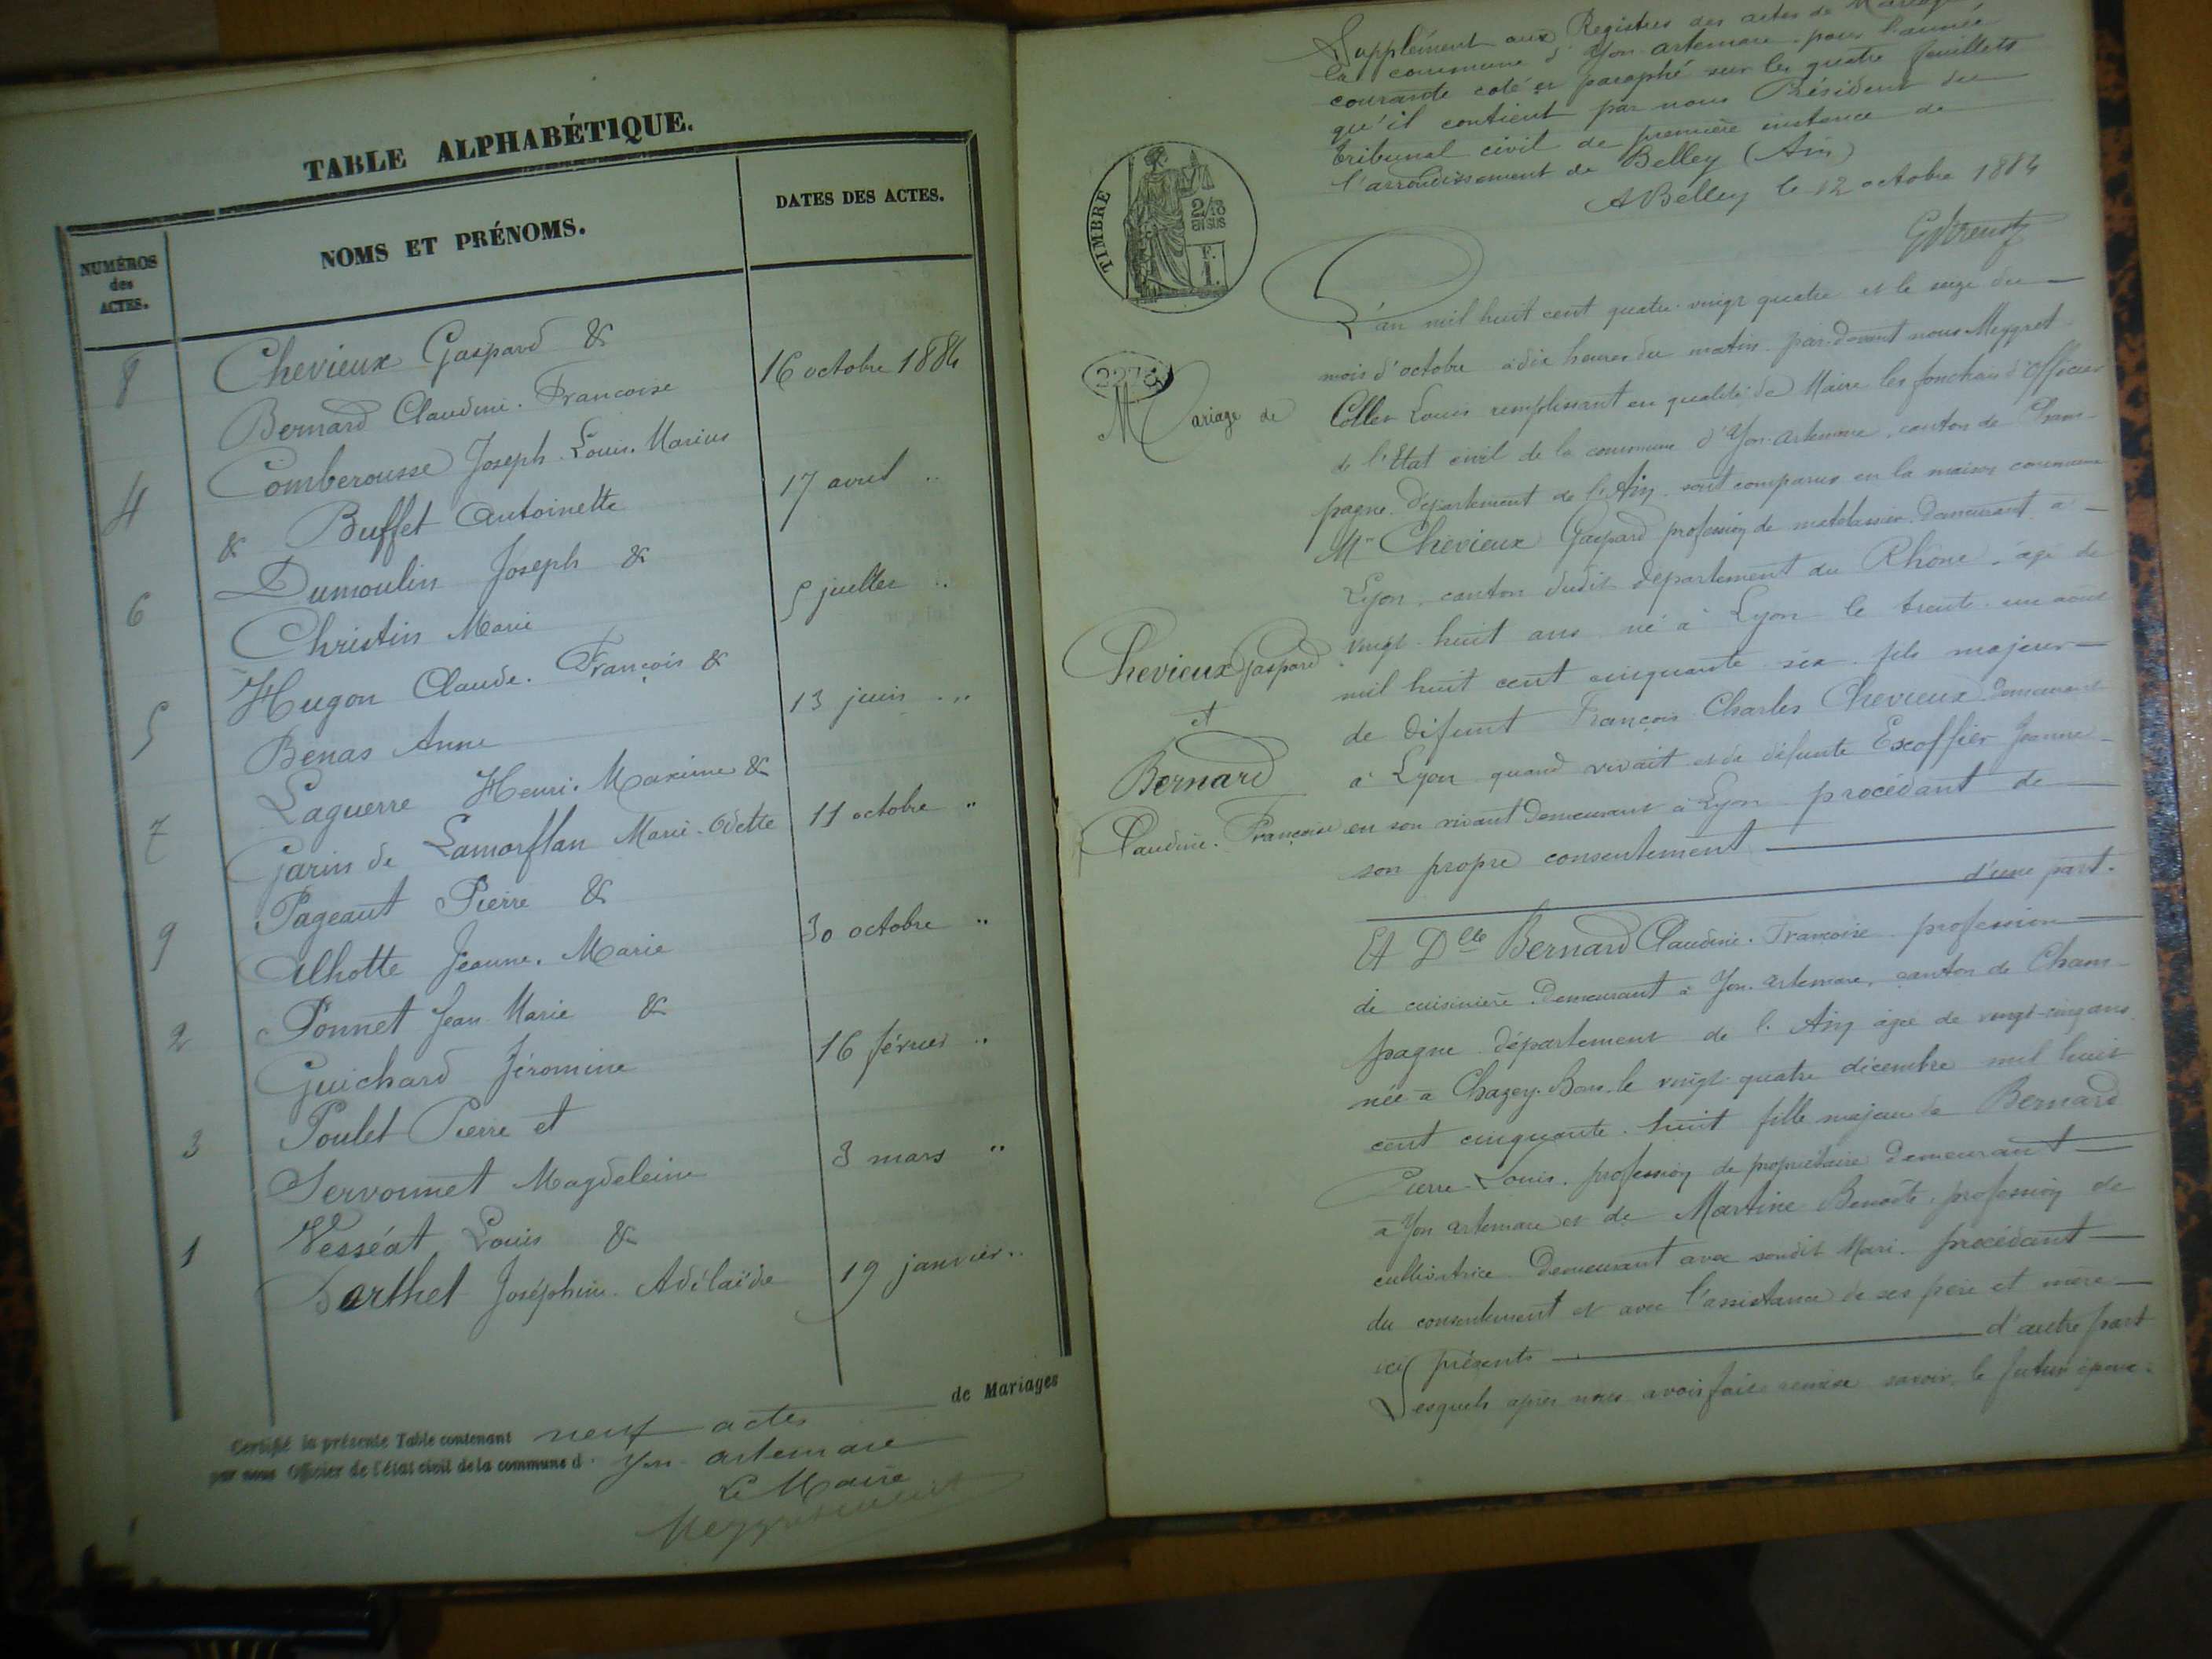 TABLE ALPHABÉTIQUE.
NUMÉROS
des
ACTES.
NOMS ET PRÉNOMS.
DATES DES ACTES.
8 Chevieux Gaspard &
Bernard Claudine. Francoise 16 octobre 1884
4 Comberousse Joseph. Louis. Marius
& Buffet Antoinette 17 avril "
6 Dumoulin Joseph &
Christin Marie 5 juillet "
5 Hugon Claude. François &
Benas Anne 13 juin "
7 Laguerre Henri. Maxime &
Garin de Lamorflan Marie. Odette 11 octobre "
9 Pageaut Pierre &
Alhotte Jeanne. Marie 30 octobre "
2 Ponnet Jean Marie &
Guichard Jéromine 16 février "
3 Poulet Pierre et
Servonnet Magdeleine 3 mars "
1 Vesséat Louis &
Barthel Joséphine. Adélaïde 19 janvier "
Certifié la présente Table contenant neuf actes de Mariages
par nous Officier de l'état civil de la commune d' Yon artemare
Le Maire
Supplément aux Registres des actes de
la commune d'Yon artemare pour l'année
courante coté et paraphé sur les quatre feuillets
qu'il contient par nous Président du
tribunal civil de première instance de
l'arrondissement de Belley (Ain)
A Belley le 12 octobre 1884
TIMBRE
2/10
EN SUS
1 F.
L'an mil huit cent quatre-vingt quatre et le seize du
mois d'octobre à dix heures du matin. par-devant nous Meygret
Collet Louis remplissant en qualité de Maire les fonctions d'officier
de l'Etat civil de la commune d'Yon-artemare, canton de Cham-
pagne département de l'Ain sont comparus en la maison commune
Mr Chevieux Gaspard profession de matelassier demeurant à
Lyon, canton dudit département du Rhône, âgé de
vingt-huit ans né à Lyon le trente-un août
mil huit cent cinquante-six fils majeur
de défunt François Charles Chevieux demeurant
à Lyon quand vivait et de défunte Escoffier Jeanne
en son vivant demeurant à Lyon procédant de
son propre consentement
d'une part.
Mariage de
Chevieux Gaspard
et
Bernard
Claudine. Françoise
Et Dlle Bernard Claudine. Francoise profession
de cuisinière demeurant à Yon. artemare, canton de Cham-
pagne département de l'Ain âgée de vingt-cinq ans
née à Chazey-Bons le vingt-quatre décembre mil huit
cent cinquante-huit fille majeure de Bernard
Pierre-Louis, profession de propriétaire demeurant
à Yon artemare et de Martine Benoîte profession de
cultivatrice demeurant avec sondit Mari. procédant
du consentement et avec l'assistance de ses père et mère
ici présents d'autre part
Lesquels après nous avoir fait remise savoir, le futur époux: